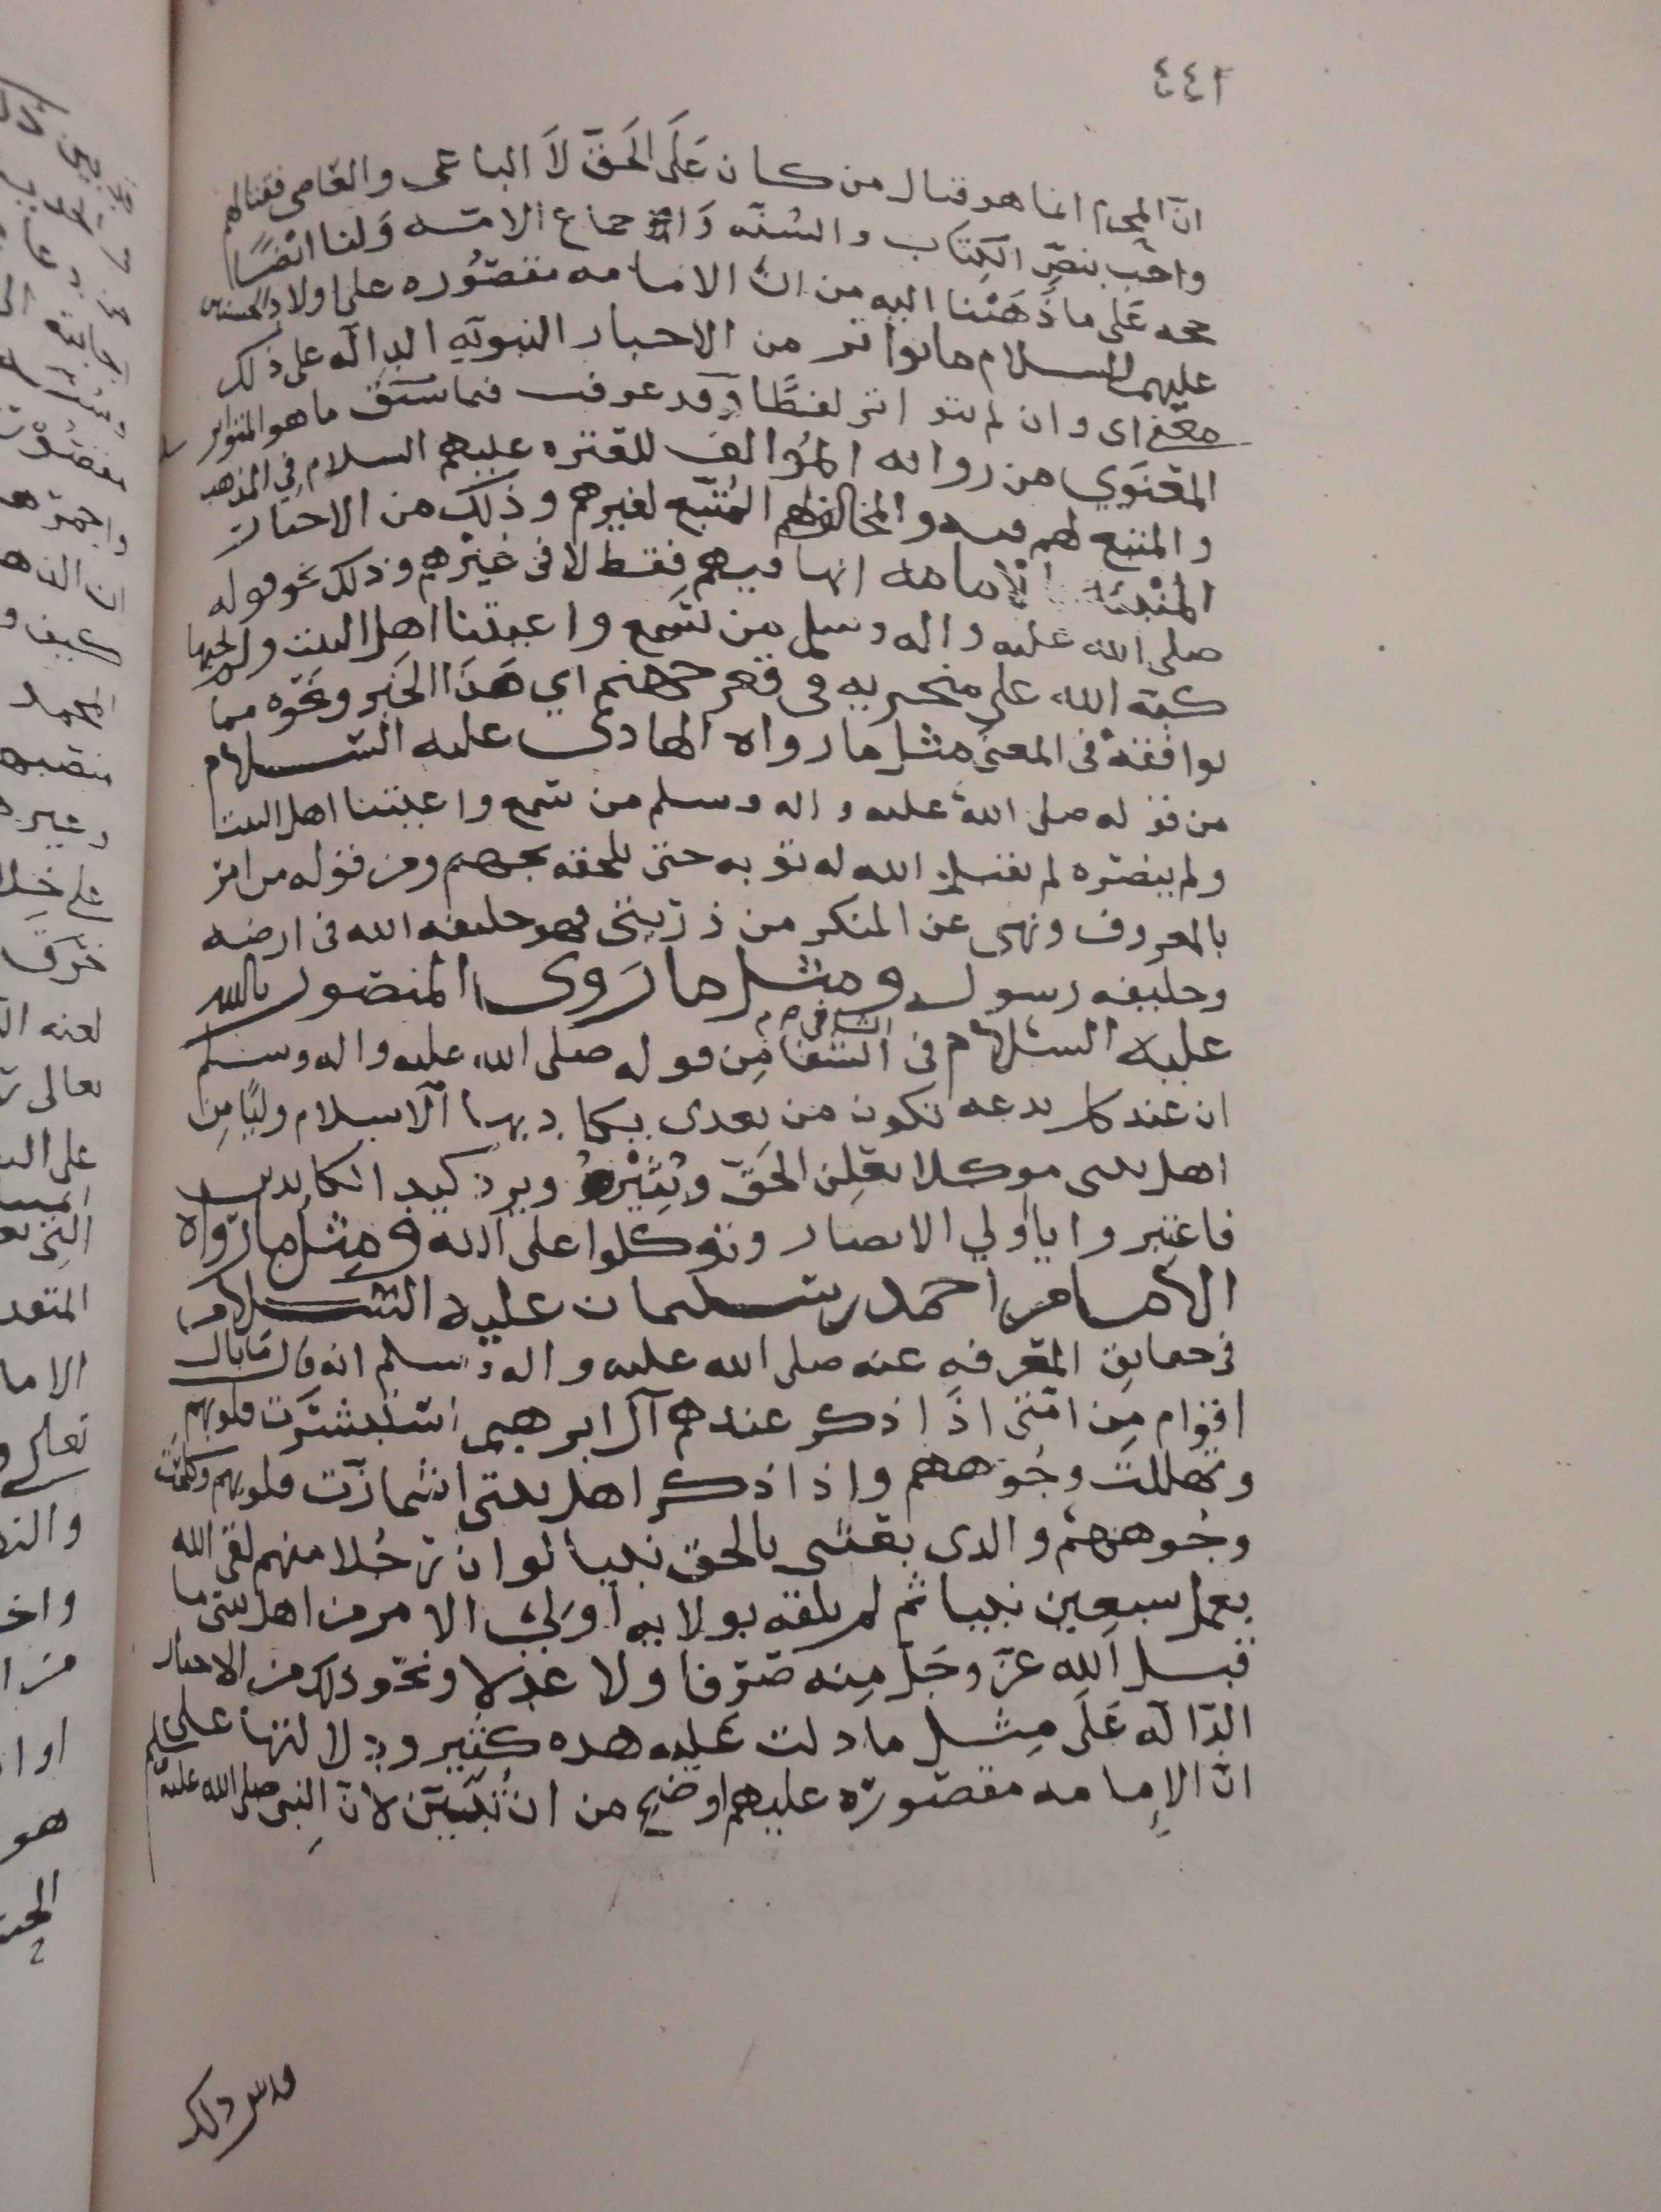 ٤٤٢
ان المحرم انما هو قتال من كان عَلَى الحَقّ لاَ الباغى والعَاصى فقتالهم
واجب بنصِّ الكِتاب والسُنّه وَاجماع الامّه وَلنا ايْضًا
حجه عَلى ما ذَهَبْنا اليه من انّ الامامه مقصُوره على اولاد الحسنين
عليهما السلام ما تواتر من الاخبار النبويّه الدالّه على ذلك
معنى اى وان لم يتواتر لفظًا وقد عرفت فيما سَبق ما هو المتواتر
المعْنَوي من روايه المُؤالف للعتره عليهم السلام فِي المذهب
والمتبع لهم فيه والمخالف لهم المُتّبع لغيرهم وذلك من الاخبار
المنْبئه الامامه انها فيهم فقط لا فى غيْرهم وذلك نحو قوله
صلى الله عليه واله وسلم من سَمع واعيتنا اهل البيت ولم يجبها
كبّه الله على منخريه فى قعر جهنم اي هَذَا الخَبر ونحْوه مما
يوافقهُ فى المعنى مثل ما رواه الهادى عليه السلام
من قوله صلى الله عليه واله وسلم من سَمع واعيتنا اهل البيت
ولم ينصره لم يقبل الله له توبه حتى تلحقه جهنم ومن قوله من امر
بالمعروف ونهى عن المنكر من ذريتى فهو خليفه الله فى ارضه
وخليفه رسوله ومثل ما رَوى المنصور بالله
عليه السّلام فى الشافى مِن قوله صلى الله عليه واله وسلم
ان عند كل بدعه تكون من بعدى يكاد بها الاسلام وليًّا مِن
اهل بيتى موكلا يعلِن الحَقّ ويُنَيْرهُ ويرد كيد الكايدين
فاعتبروا يا اولي الابصار وتوكلوا على الله ومثل ما رَوَاه
الامام احمد بن سليمان عليه السّلام
فى حقايق المعْرفه عنه صلى الله عليه واله وسلم انه قال مَا بال
اقوام مِن امّتى اذَا ذكر عندهم آل ابرهيم استبشرَت قلوبهم
وتهللت وجُوههم واذا ذكر اهل بيتى اشمازّت قلوبهم وكلحت
وجُوههم والذى بعثنى بالحق نبيا لو ان رجُلا منهم لقى الله
بعمل سبعين نبيا ثم لم يلقه بولايه اولي الامر من اهل بيتى ما
قبل الله عزّ وجَلّ مِنه صَرْفا ولا عدلا ونحو ذلك من الاخبار
الدّالّه عَلَى مِثل ما دلت عَليه هذه كثير ودلالتها على
انّ الإمامه مقصُورَه عليهم اوضح من ان تُبَيّن لانّ النبى صلى الله عليه وسلم